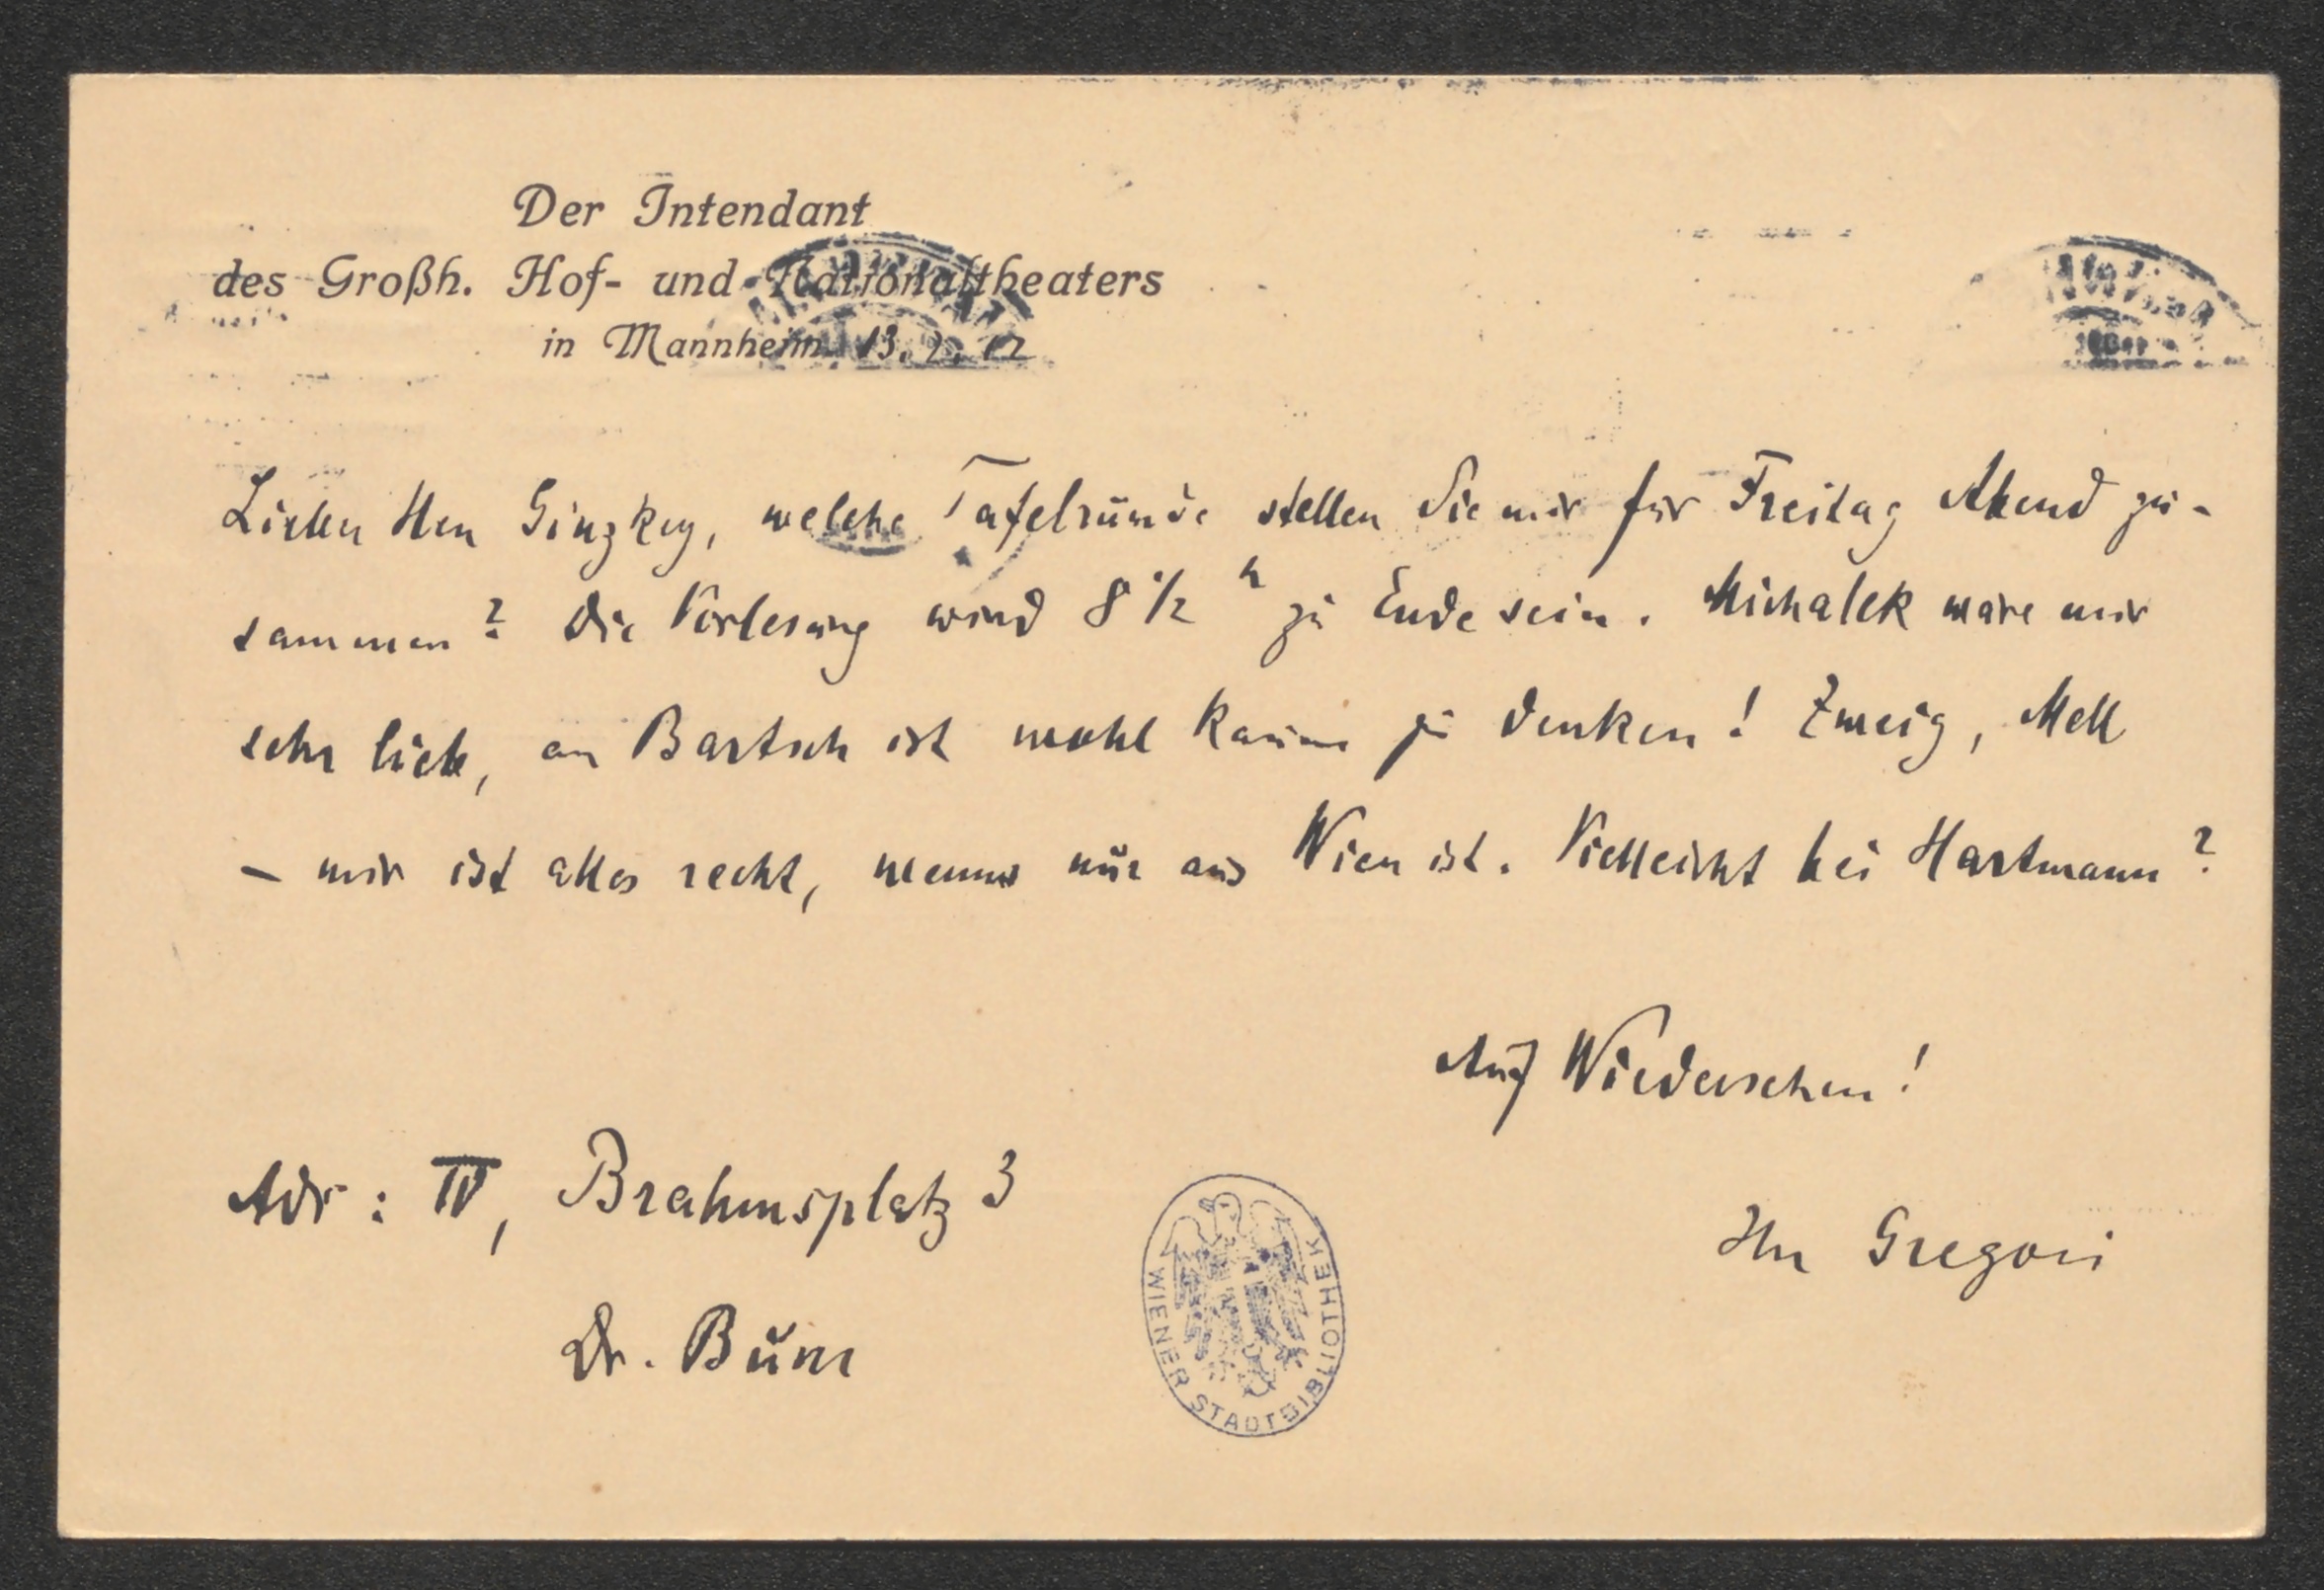 Der Intendant
des Großh. Hof- und Nationaltheaters
in Mannheim, 13. 2. 12
Lieber Herr Ginzkey, welche Tafelrunde stellen Sie mir für Freitag Abend zu-
sammen? Die Vorlesung wird 8 1/2 h zu Ende sein. Michalek wäre mir
sehr lieb, an Bartsch ist wohl kaum zu denken! Zweig, Mell
– mir ist alles recht, wenns nur aus Wien ist. Vielleicht bei Hartmann?
Auf Wiedersehen!
Adr: IV, Brahmsplatz 3
Ihr Gregori
Dr. Bum
WIENER STADTBIBLIOTHEK